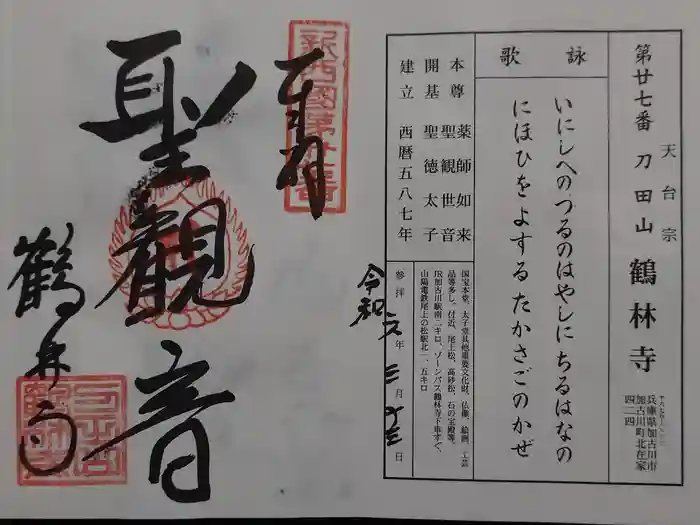 第廿七番 刀田山 鶴林寺
天台宗
兵庫県加古川市
加古川町北在家
四二四
詠歌
いにしへのつるのはやしにちるはなの
にほひをよするたかさごのかぜ
本尊 薬師如来
聖観世音
開基 聖徳太子
建立 西暦五八七年
国宝本堂、太子堂其他重要文化財、仏像、絵画、工芸
品等多し。付近、尾上松、高砂松、石の宝殿等。
JR加古川駅南二キロ、ゾーンバス鶴林寺下車すぐ、
山陽電鉄尾上の松駅北一、五キロ
参拝 令和六年三月 日
新西國第廿七番
奉拝
聖観音
鶴林寺